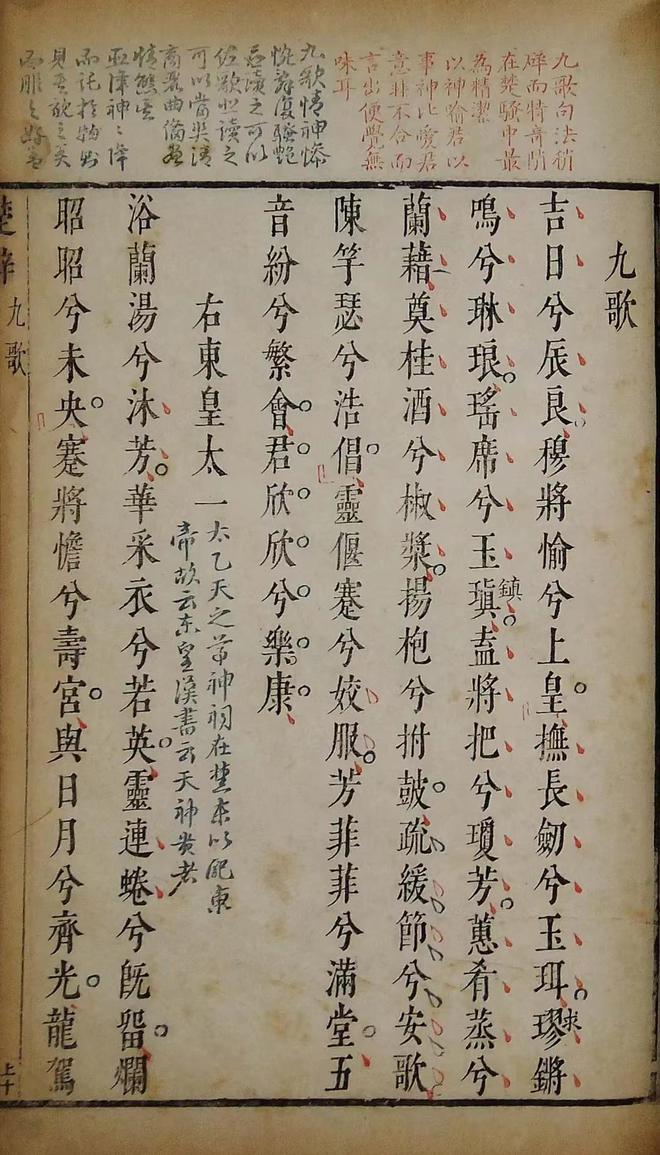 九歌句法稍
碎而特奇閒
在楚騷中最
為精潔
以神喻君以
事神比愛君
意非不合而
言出便覺無
味耳
九歌情神慘
惋辭復騷艷
喜讀之可以
佐歌悲讀之
可以當哭清
商麗曲備盡
情態矣
巫降神〻降
而託於
之美
而服之好
九歌
吉日兮辰良。穆將愉兮上皇。撫長劒兮玉珥。璆求鏘
鳴兮琳琅。瑤席兮玉瑱鎮。盍將把兮瓊芳。蕙肴蒸兮
蘭藉。奠桂酒兮椒漿。揚枹兮拊鼓。疏緩節兮安歌
陳竽瑟兮浩倡。靈偃蹇兮姣服。芳菲菲兮滿堂。五
音紛兮繁會。君。欣。欣。兮。樂。康。
右東皇太一
太乙天之尊神祠在楚東以配東
帝故云東皇漢書云天神貴者
浴蘭湯兮沐芳。華采衣兮若英。靈連蜷兮既畱。爛
昭昭兮未央。蹇將憺兮壽宮。與日月兮齊光。龍駕
楚辭 九歌
上十